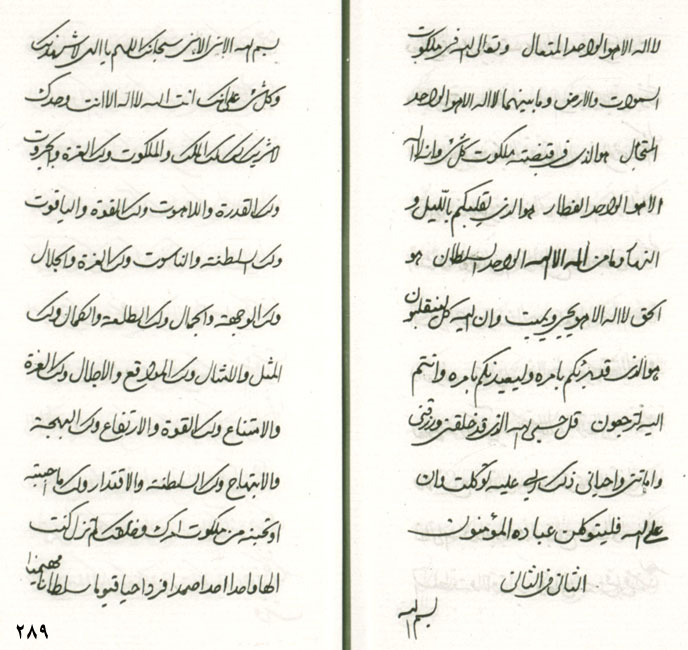 لا اله الا هو الواحد المتعال وتعالى الله فى ملكوت
السموات والارض وما بينهما لا اله الا هو الواحد
المتعال هو الذى فى قبضته ملكوت كل شئ وانه لا اله
الا هو الواحد القطار هو الذى يقلبكم بالليل و
النهار وما من اله الا الله الواحد السلطان هو
الحق لا اله الا هو يحيى ويميت وان اليه كل لينقلبون
هو الذى قد بدئكم بامره وليعيدنكم بامره وانتم
اليه لترجعون قل حسبى الله الذى قد خلقنى ورزقنى
واماتنى واحيانى ذلك ربى عليه توكلت وان
على الله فليتوكلن عباده المؤمنون
الثانى فى الثانى
بسم الله
بسم الله الابهى الابهى سبحانك اللهم يا الهى لاشهدنك
وكل شئ على انك انت الله لا اله الا انت وحدك
لا شريك لك لك الملك والملكوت ولك العزة والجبروت
ولك القدرة واللاهوت ولك القوة والياقوت
ولك السلطنة والناسوت ولك العزة والجلال
ولك الوجهة والجمال ولك الطلعة والكمال ولك
المثل والامثال ولك المواقع والاجلال ولك العزة
والامتناع ولك القوة والارتفاع ولك البهجة
والابتهاج ولك السلطنة والاقتدار ولك ما احببته
او تحبنه من ملكوت امرك وخلقك لم تزل كنت
الها واحدا احدا صمدا فردا حيا قيوما سلطانا مهيمنا
٢٨٩